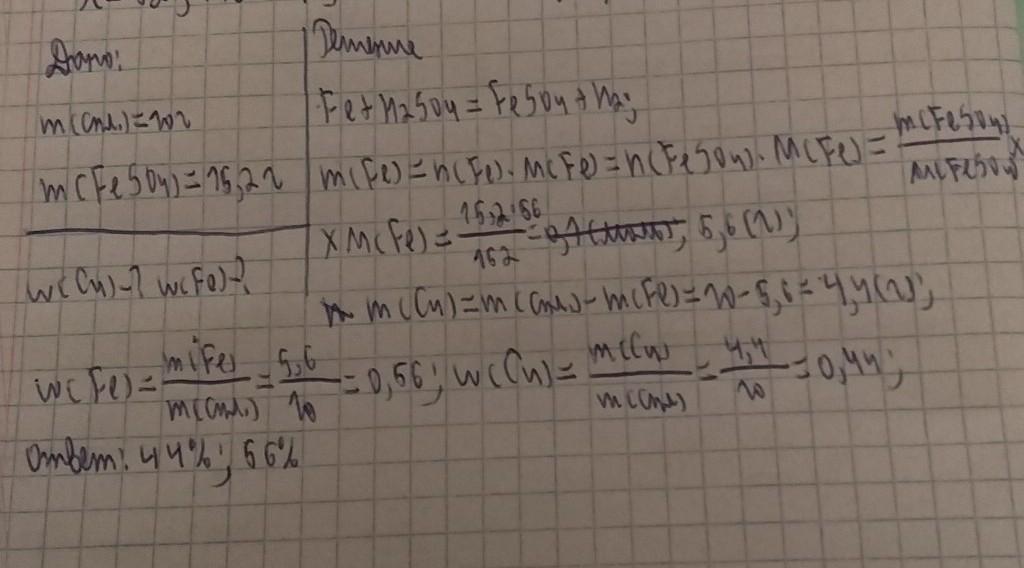 Дано:
m(спл.)=10г
m(FeSO4)=15,2г
w(Cu)-? w(Fe)-?
Решение
Fe+H2SO4=FeSO4+H2;
m(Fe)=n(Fe)·M(Fe)=n(FeSO4)·M(Fe)=m(FeSO4)/M(FeSO4)×
×M(Fe)=15,2·56/152=5,6(г);
m(Cu)=m(спл.)-m(Fe)=10-5,6=4,4(г);
w(Fe)=m(Fe)/m(спл.)=5,6/10=0,56; w(Cu)=m(Cu)/m(спл)=4,4/10=0,44;
Ответ: 44%; 56%